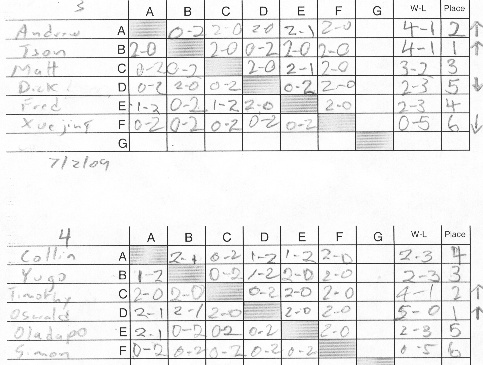 5
A B C D E F G W-L Place
Andrew A 0-2 2-0 2-0 2-1 2-0 4-1 2 ↑
Tson B 2-0 2-0 0-2 2-0 2-0 4-1 1 ↑
Matt C 0-2 0-2 2-0 2-1 2-0 3-2 3
Dick D 0-2 2-0 0-2 0-2 2-0 2-3 5 ↓
Fred E 1-2 0-2 1-2 2-0 2-0 2-3 4
Xuejing F 0-2 0-2 0-2 0-2 0-2 0-5 6 ↓
G
7/2/09
4
A B C D E F G W-L Place
Collin A 2-1 0-2 1-2 1-2 2-0 2-3 4
Yugo B 1-2 0-2 1-2 2-0 2-0 2-3 3
Timothy C 2-0 2-0 0-2 2-0 2-0 4-1 2 ↑
Oswald D 2-1 2-1 2-0 2-0 2-0 5-0 1 ↑
Oladapo E 2-1 0-2 0-2 0-2 2-0 2-3 5
Simon F 0-2 0-2 0-2 0-2 0-2 0-5 6